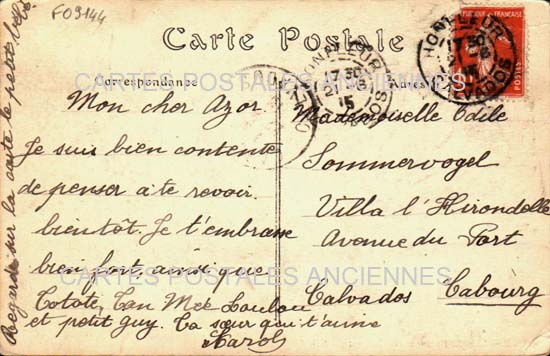 F09144
Carte Postale
Correspondance
Mon cher Azor
Je suis bien contente
de penser à te revoir
bientot. Je t'embrasse
bien fort ainsi que
Totote, Tan Mee Loulou
et petit guy. Ta sœur qui t'aime
Regarde sur la carte le petit
Adresse
Mademoiselle Odile
Sommervogel
Villa l'Hirondelle
Avenue du Port
Calvados Cabourg
HONFLEUR
17 30
21 -8
15
CALVADOS
HONFLEUR
17 30
15
CALVADOS
RÉPUBLIQUE FRANÇAISE
POSTES
CARTES POSTALES ANCIENNES
CARTES POSTALES ANCIENNES